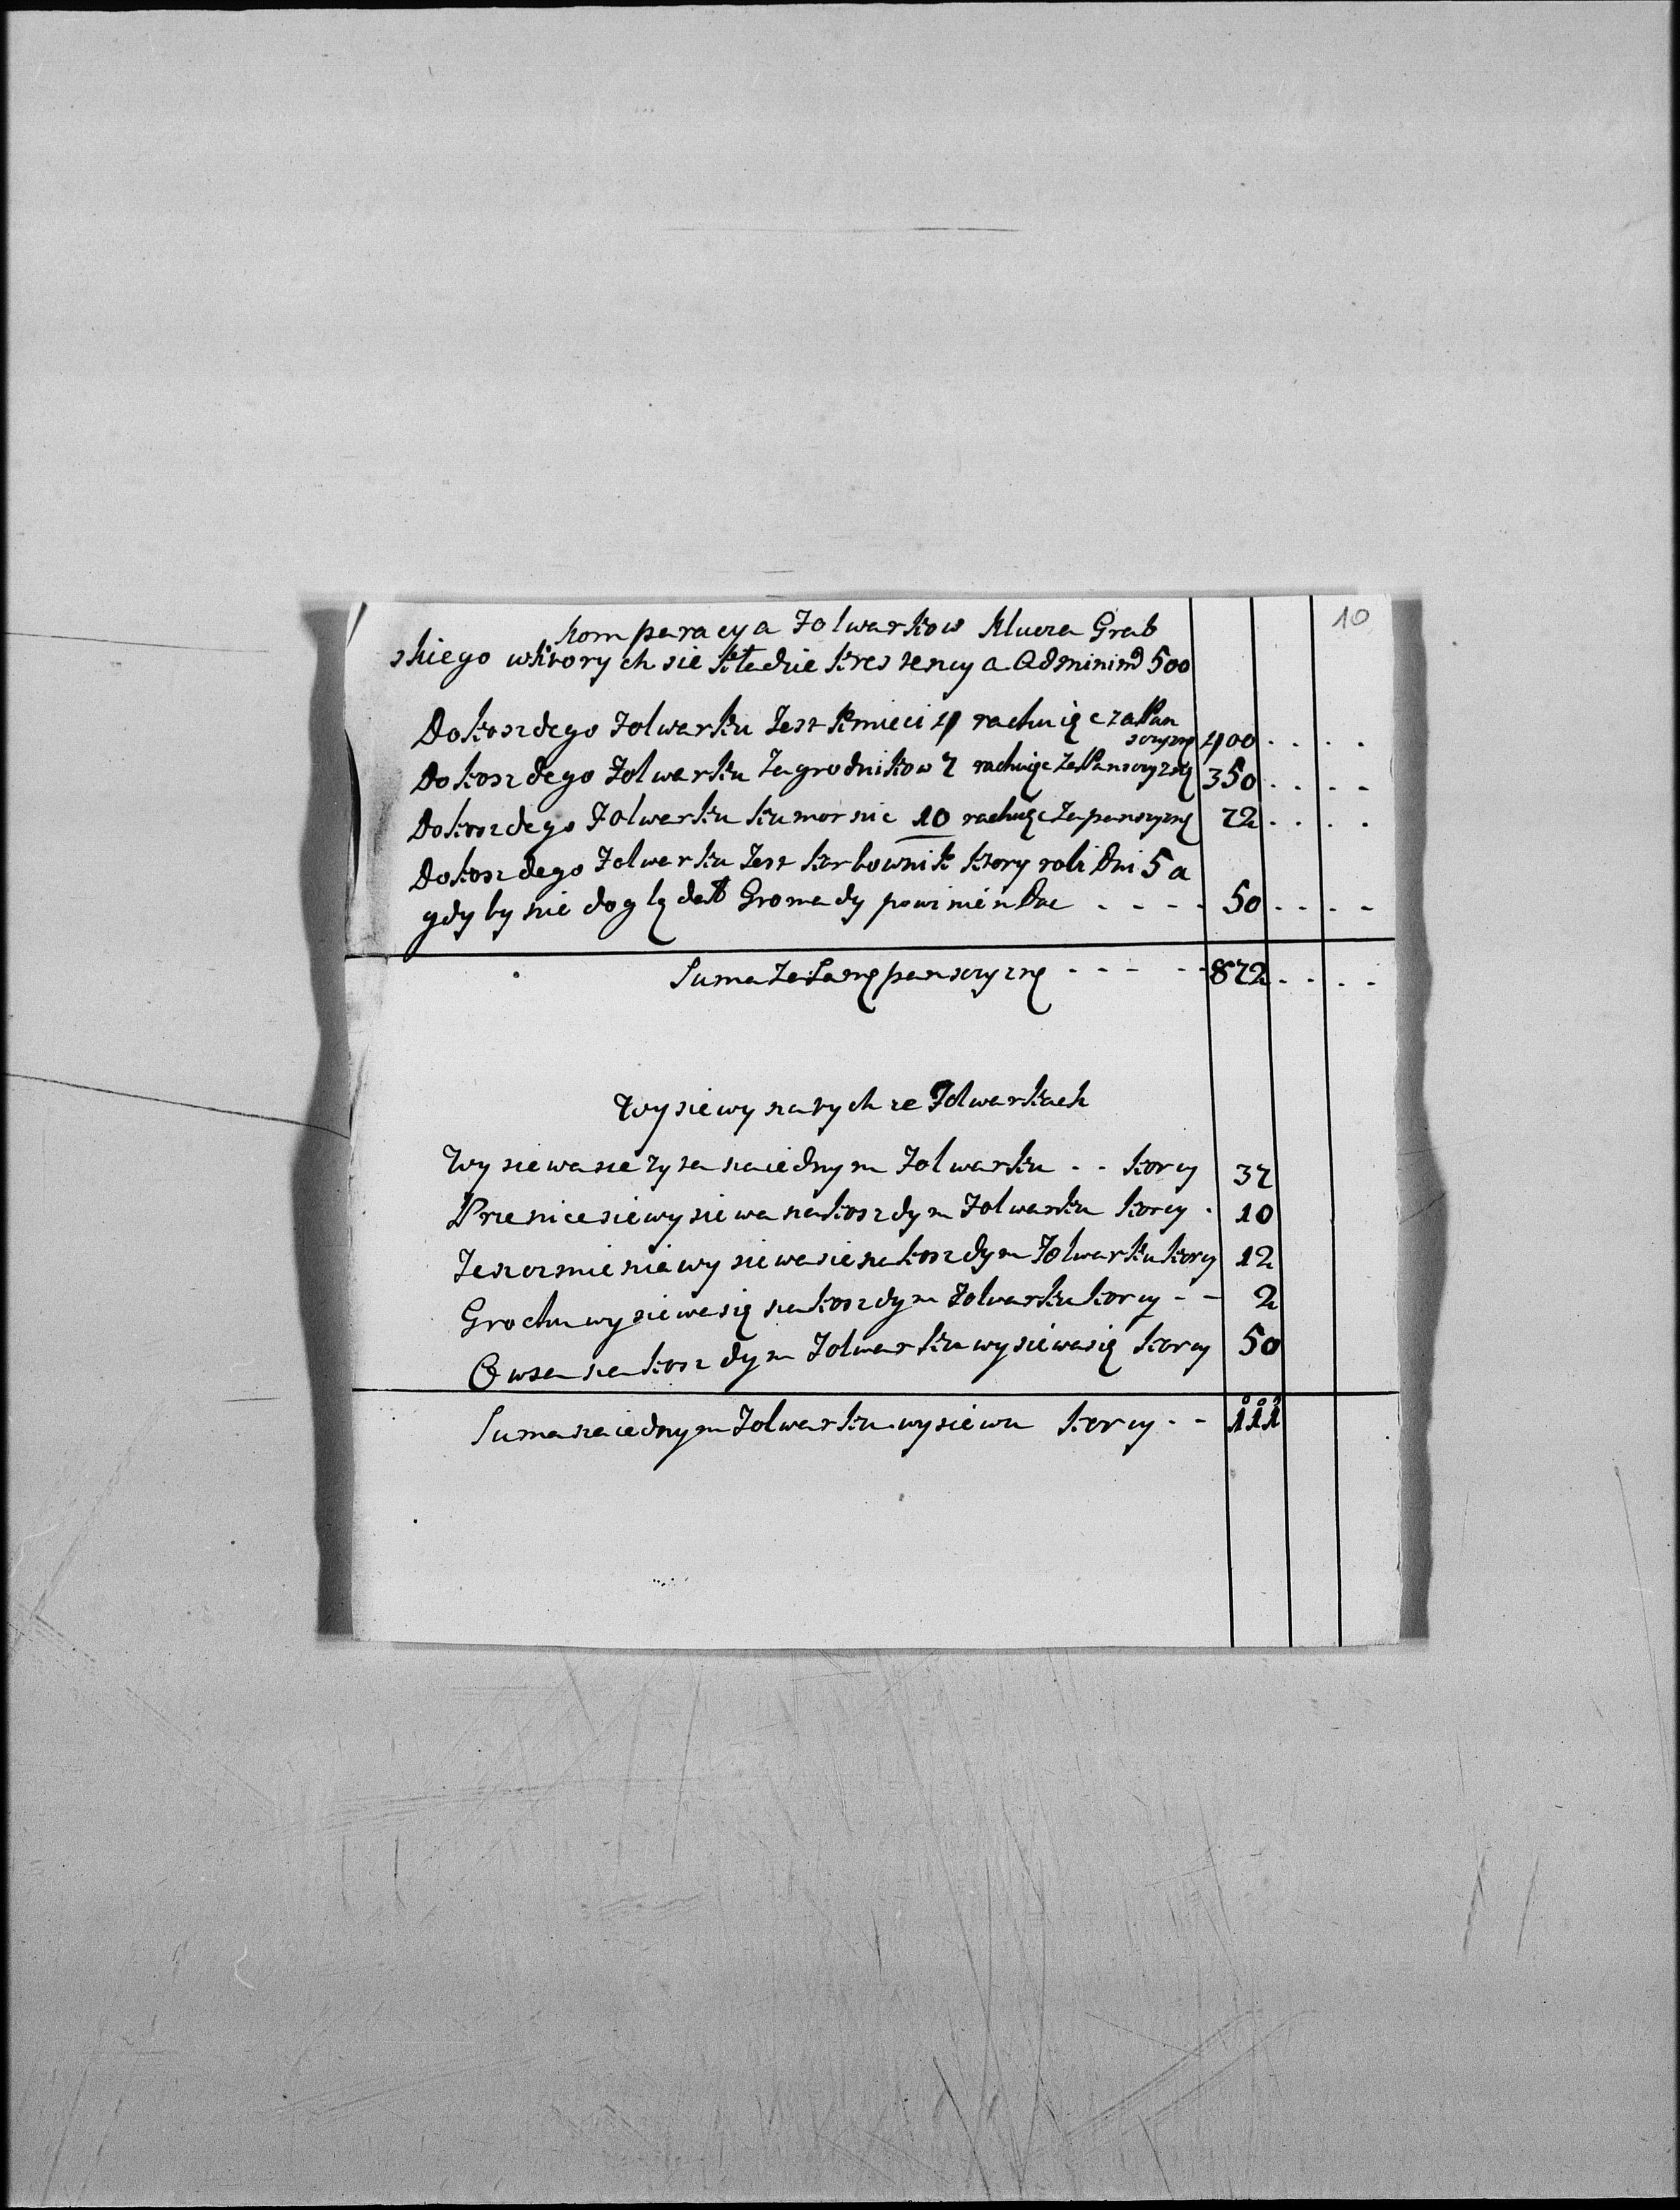 10
Komparacya Folwarkow Klucza Grab
skiego wktorych sie kładzie krestencya Adminimd 500
Do kozdego Folwarku Jest kmieci 4 rachuięc za Pan
sczyznę 400 . . . .
Do kozdego Folwarku Zagrodnikow 7 rachuięc za Pansczyznę 350 . . . .
Do kozdego Folwarku kumornic 10 rachuięc za pansczyznę 72 . . . .
Do kozdego Folwarku Jest karbownik ktory robi Dni 5 a
gdy by nie doględał Gromady powinien Dac - - - - 50 . . . .
Suma Za Samę pansczyznę - - - - - 872 . . . .
Wysiewy na tych ze Folwarkach
Wysiewa sie zyta na iednym Folwarku - - korcy 37
Przenice sie wysiewa na kozdym Folwarku korcy . 10
Jenczmienia wysiewa sie na kozdym Folwarku korcy 12
Grochu wysiewa się na kozdym Folwarku korcy - - 2
Owsa na kozdym Folwarku wysiewa się korcy 50
Suma na iednym Folwarku wysiewu korcy - - 111